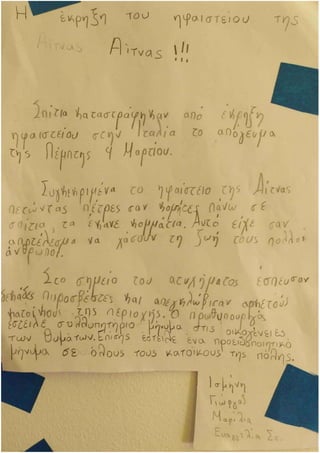 Η έκρηξη του ηφαιστείου της
Αίτνας Αίτνας !!!
Σπίτια καταστράφηκαν από έκρηξη
ηφαιστείου στην Ιταλία το απόγευμα
της Πέμπτης 9 Μαρτίου.
Συγκεκριμένα το ηφαίστειο της Αίτνας
πετώντας πέτρες σαν κομήτες πάνω σε
σπίτια, τα έκανε κομμάτια. Αυτό είχε σαν
αποτέλεσμα να χάσουν τη ζωή τους πολλοί
άνθρωποι.
Στο σημείο του ατυχήματος έσπευσαν
δεκάδες πυροσβέστες και απεγκλώβισαν αρκετούς
κατοίκους της περιοχής. Ο πρωθυπουργός
έστειλε συλλυπητήριο μήνυμα στις οικογένειες
των θυμάτων. Επίσης έστειλε ένα προειδοποιητικό
μήνυμα σε όλους τους κατοίκους της πόλης.
Ισμήνη
Γιώργος
Μαρίλια
Ευαγγελία Σε.